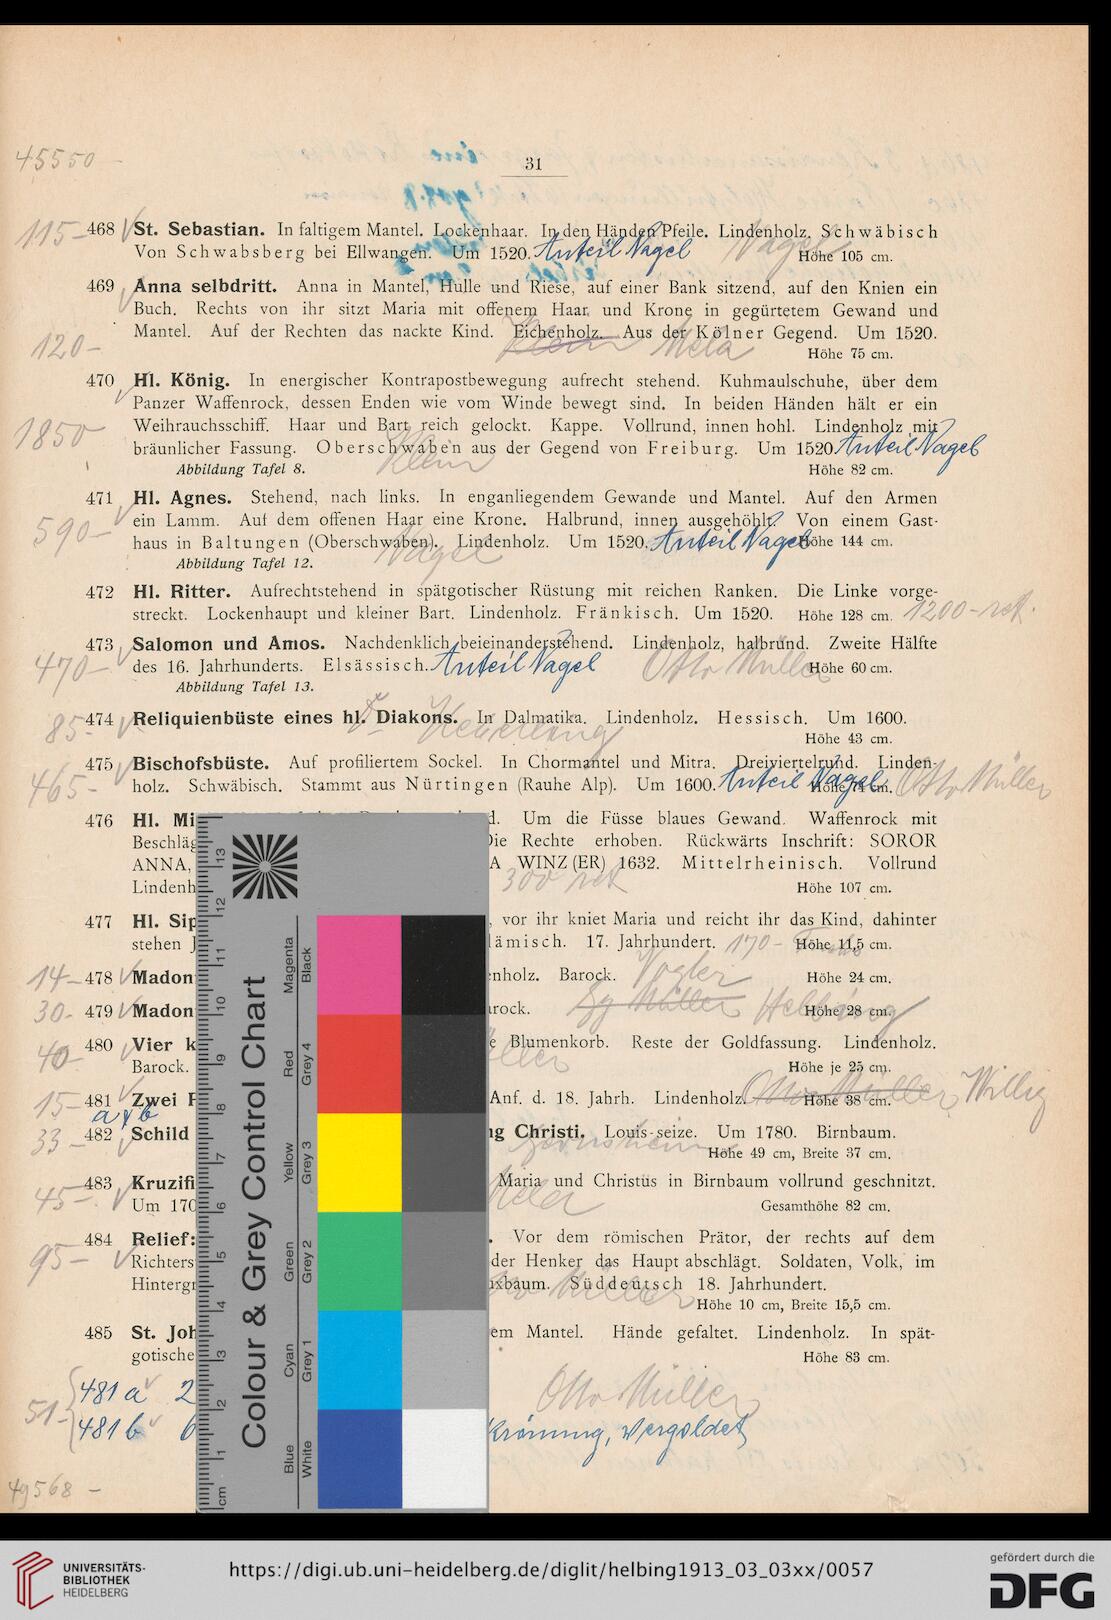 45550 -
31
115- 468 St. Sebastian. In faltigem Mantel. Lockenhaar. In den Händen Pfeile. Lindenholz. Schwäbisch
Von Schwabsberg bei Ellwangen. Um 1520. Anteil Nagel Nagel Höhe 105 cm.
469 Anna selbdritt. Anna in Mantel, Hülle und Riese, auf einer Bank sitzend, auf den Knien ein
Buch. Rechts von ihr sitzt Maria mit offenem Haar und Krone in gegürtetem Gewand und
Mantel. Auf der Rechten das nackte Kind. Eichenholz. Aus der Kölner Gegend. Um 1520.
120- Klein Mela Höhe 75 cm.
470 Hl. König. In energischer Kontrapostbewegung aufrecht stehend. Kuhmaulschuhe, über dem
Panzer Waffenrock, dessen Enden wie vom Winde bewegt sind. In beiden Händen hält er ein
1850 Weihrauchsschiff. Haar und Bart reich gelockt. Kappe. Vollrund, innen hohl. Lindenholz mit
bräunlicher Fassung. Oberschwaben aus der Gegend von Freiburg. Um 1520. Anteil Nagel
Abbildung Tafel 8. Klein Höhe 82 cm.
471 Hl. Agnes. Stehend, nach links. In enganliegendem Gewande und Mantel. Auf den Armen
590- ein Lamm. Auf dem offenen Haar eine Krone. Halbrund, innen ausgehöhlt. Von einem Gast-
haus in Baltungen (Oberschwaben). Lindenholz. Um 1520. Anteil Nagel Höhe 144 cm.
Abbildung Tafel 12. Nagel
472 Hl. Ritter. Aufrechtstehend in spätgotischer Rüstung mit reichen Ranken. Die Linke vorge-
streckt. Lockenhaupt und kleiner Bart. Lindenholz. Fränkisch. Um 1520. Höhe 128 cm. 1200- ret.
473 Salomon und Amos. Nachdenklich beieinanderstehend. Lindenholz, halbrund. Zweite Hälfte
470- des 16. Jahrhunderts. Elsässisch. Anteil Nagel Otto Müller Höhe 60 cm.
Abbildung Tafel 13.
85- 474 Reliquienbüste eines hl. Diakons. In Dalmatika. Lindenholz. Hessisch. Um 1600.
Höhe 43 cm.
475 Bischofsbüste. Auf profiliertem Sockel. In Chormantel und Mitra. Dreiviertelrund. Linden-
465- holz. Schwäbisch. Stammt aus Nürtingen (Rauhe Alp). Um 1600. Anteil Nagel Höhe 74 cm. Otto Müller
476 Hl. Mi d. Um die Füsse blaues Gewand. Waffenrock mit
Beschläg Die Rechte erhoben. Rückwärts Inschrift: SOROR
ANNA, A WINZ(ER) 1632. Mittelrheinisch. Vollrund
Lindenh 300 ret Höhe 107 cm.
477 Hl. Sip , vor ihr kniet Maria und reicht ihr das Kind, dahinter
stehen J lämisch. 17. Jahrhundert. 170- Höhe 11,5 cm.
14- 478 Madon nholz. Barock. Vogler Höhe 24 cm.
30- 479 Madon rock. Müller Helbing Höhe 28 cm.
480 Vier k e Blumenkorb. Reste der Goldfassung. Lindenholz.
40- Barock. Höhe je 25 cm.
15- 481 Zwei F Anf. d. 18. Jahrh. Lindenholz. Otto Müller Höhe 38 cm. Willig
a & b
33- 482 Schild ng Christi. Louis-seize. Um 1780. Birnbaum.
Höhe 49 cm, Breite 37 cm.
483 Kruzifi Maria und Christus in Birnbaum vollrund geschnitzt.
45- Um 170 Mela Gesamthöhe 82 cm.
484 Relief: . Vor dem römischen Prätor, der rechts auf dem
95- Richters der Henker das Haupt abschlägt. Soldaten, Volk, im
Hintergr xbaum. Süddeutsch 18. Jahrhundert.
Müller Höhe 10 cm, Breite 15,5 cm.
485 St. Joh em Mantel. Hände gefaltet. Lindenholz. In spät-
gotische Höhe 83 cm.
481 a 2 Otto Müller
51-
481 b 6 Krönung, vergoldet
49568 -
Colour & Grey Control Chart
Magenta Black
Red Grey 4
Yellow Grey 3
Green Grey 2
Cyan Grey 1
Blue White
cm 1 2 3 4 5 6 7 8 9 10 11 12 13
UNIVERSITÄTS-
BIBLIOTHEK
HEIDELBERG
https://digi.ub.uni-heidelberg.de/diglit/helbing1913_03_03xx/0057
gefördert durch die
DFG